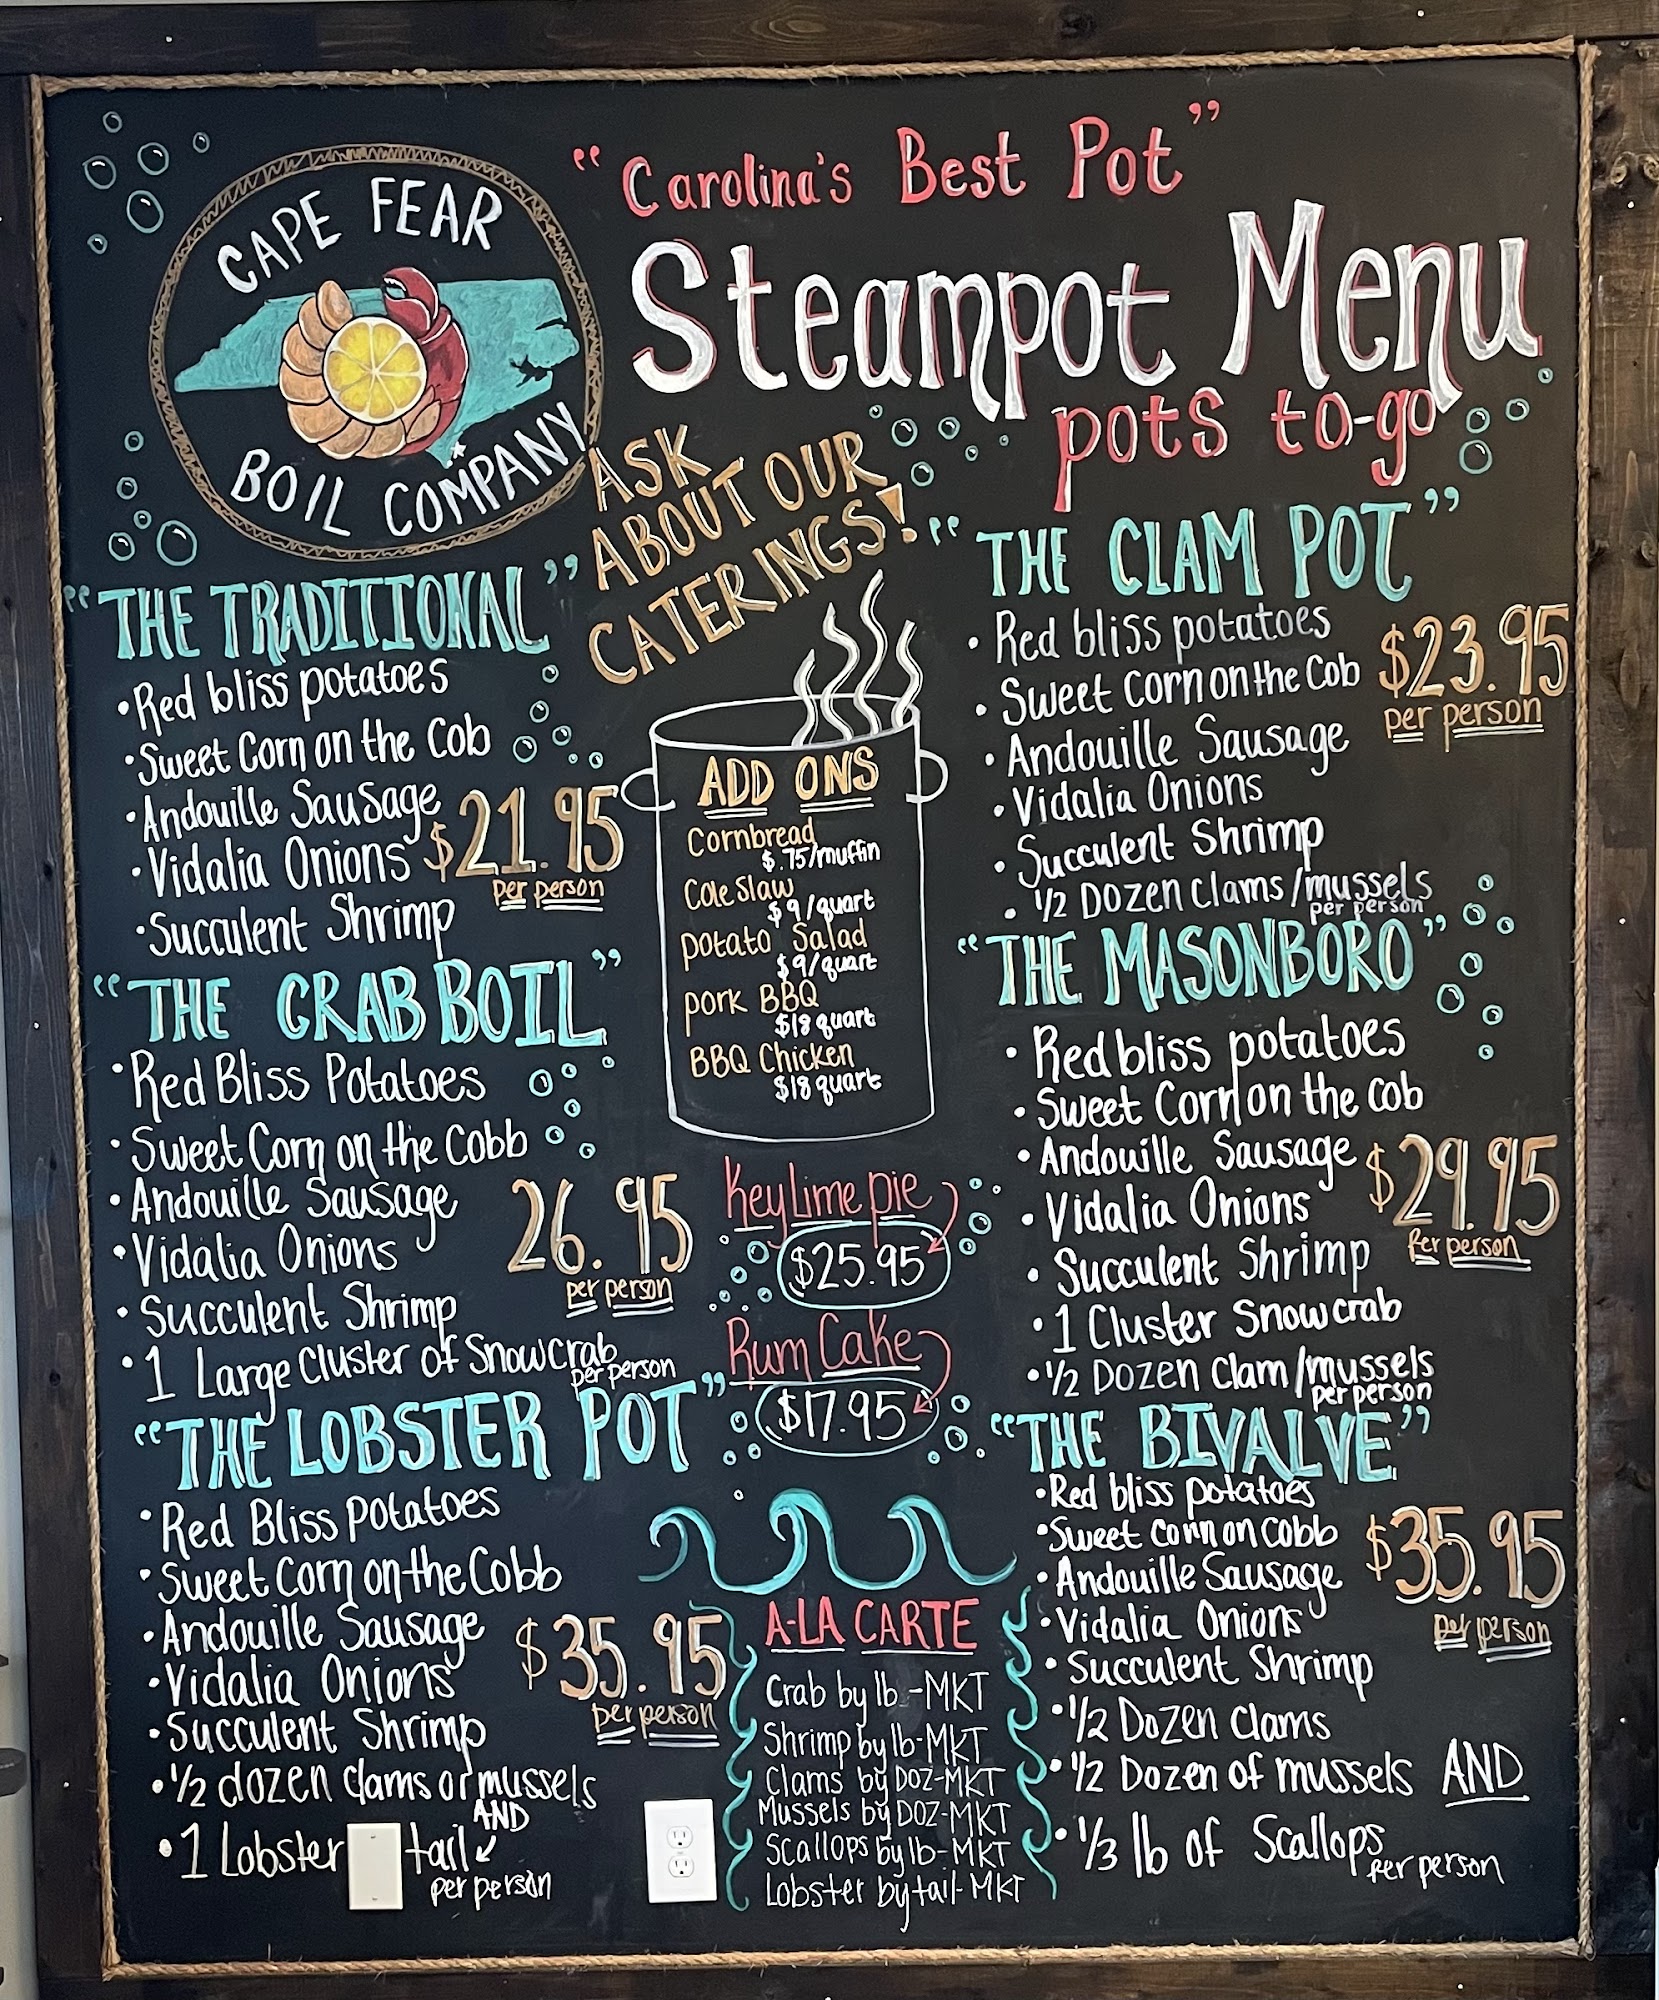 CAPE FEAR
BOIL COMPANY
"Carolina's Best Pot"
Steampot Menu
pots to-go
ASK
ABOUT OUR
CATERINGS!
"THE TRADITIONAL"
•Red bliss potatoes
•Sweet Corn on the Cob
•Andouille Sausage
•Vidalia Onions
$21.95
per person
•Succulent Shrimp
"THE CRAB BOIL"
•Red Bliss Potatoes
•Sweet Corn on the Cobb
•Andouille Sausage
•Vidalia Onions
26.95
per person
•Succulent Shrimp
•1 Large Cluster of Snowcrab
per person
"THE LOBSTER POT"
•Red Bliss Potatoes
•Sweet Corn on the Cobb
•Andouille Sausage
•Vidalia Onions
$35.95
per person
•Succulent Shrimp
•1/2 dozen clams or mussels
AND
•1 Lobster tail
per person
ADD ONS
Cornbread
$.75/muffin
Cole Slaw
$9/quart
potato Salad
$9/quart
pork BBQ
$18 quart
BBQ Chicken
$18 quart
Key Lime pie
$25.95
Rum Cake
$17.95
A-LA CARTE
Crab by lb-MKT
Shrimp by lb-MKT
Clams by DOZ-MKT
Mussels by DOZ-MKT
Scallops by lb-MKT
Lobster by tail-MKT
"THE CLAM POT"
•Red bliss potatoes
•Sweet Corn on the Cob
$23.95
per person
•Andouille Sausage
•Vidalia Onions
•Succulent Shrimp
•1/2 DOZEN Clams/mussels
per person
"THE MASONBORO"
•Red bliss potatoes
•Sweet Corn on the cob
•Andouille Sausage
•Vidalia Onions
$29.95
Per person
•Succulent Shrimp
•1 Cluster Snowcrab
•1/2 DOZEN Clam/mussels
per person
"THE BIVALVE"
•Red bliss potatoes
•Sweet Corn on Cobb
•Andouille Sausage
$35.95
per person
•Vidalia Onions
•Succulent Shrimp
•1/2 DOZEN Clams
•1/2 Dozen of mussels AND
•1/3 lb of Scallops
Per person